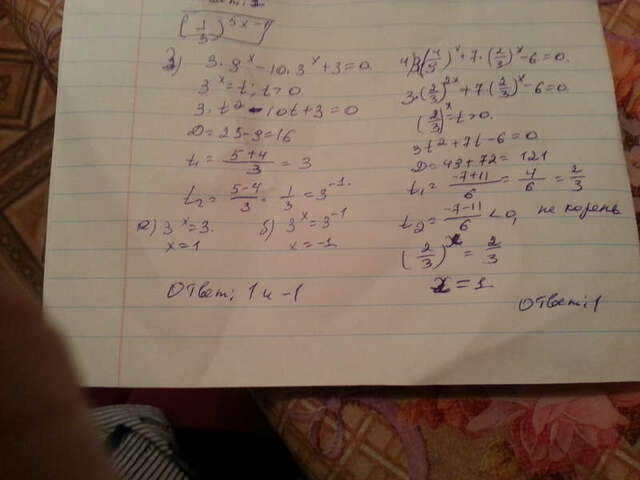 (1/3)^3x-
2) 3·9^x-10·3^x+3=0.
3^x=t; t>0.
3·t²-10t+3=0
D=25-9=16
t₁=(5+4)/3=3
t₂=(5-4)/3=1/3=3^-1.
а) 3^x=3. б) 3^x=3^-1
x=1 x=-1
Ответ: 1 и -1
4) 3(4/9)^x+7·(2/3)^x-6=0.
3·(2/3)^2x+7(2/3)^x-6=0.
(2/3)^x=t>0.
3t²+7t-6=0
D=49+72=121
t₁=(-7+11)/6=4/6=2/3
t₂=(-7-11)/6<0, не корень
(2/3)^x=2/3
x=1
Ответ: 1